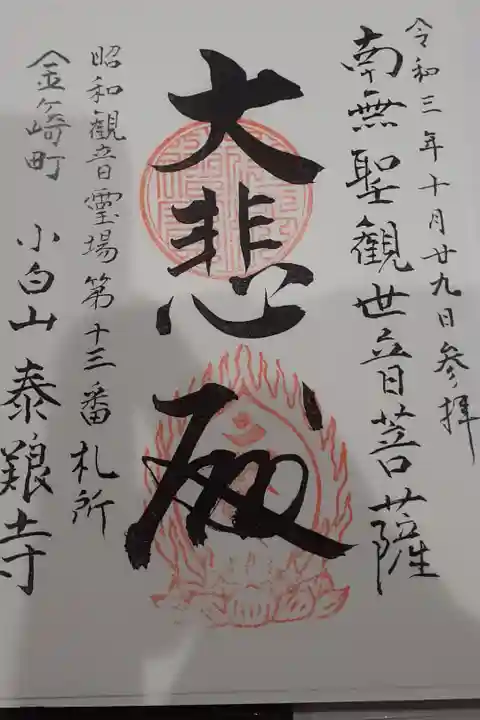 令和三年十月廿九日参拝
南無聖觀世音菩薩
大悲殿
昭和觀音霊場第十三番札所
金ヶ崎町 小白山 泰養寺